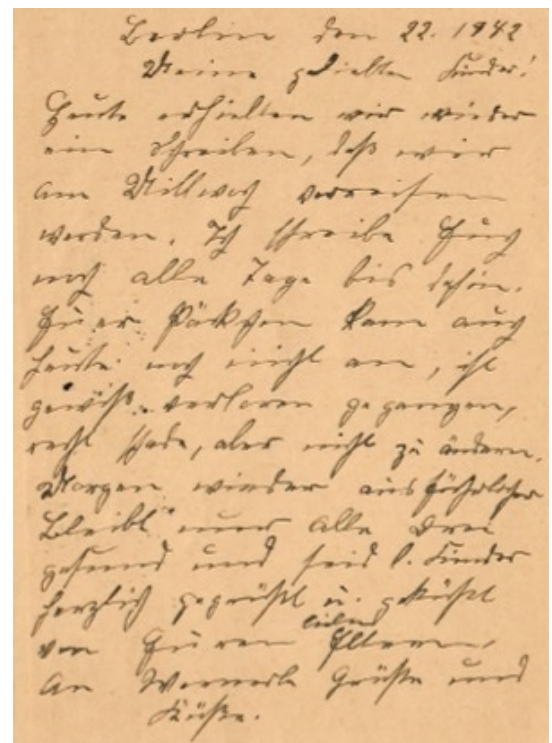 Berlin den 22. 1942
Meine geliebten Kinder!
Heute erhielten wir wieder
ein Schreiben, daß wir
am Mittwoch verreisen
werden. Ich schreibe Euch
noch alle Tage bis dahin.
Euer Päckchen kam auch
heute noch nicht an, ist
gewiß verloren gegangen,
recht schade, aber nicht zu ändern.
Morgen wieder ausführlicher
Bleibt nur alle drei
gesund und seid l. Kinder
herzlich gegrüßt u. geküßt
von Euren lieben Eltern,
An Wernerle Grüße und
Küße.